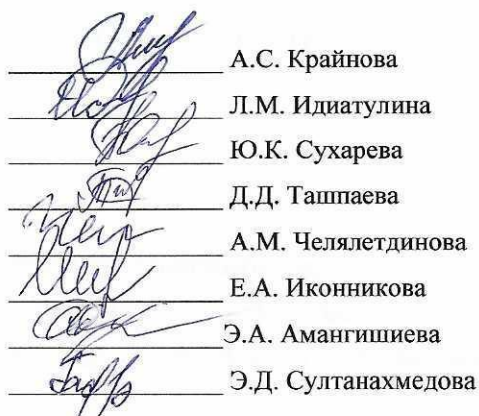 А.С. Крайнова
Л.М. Идиатулина
Ю.К. Сухарева
Д.Д. Ташпаева
А.М. Челялетдинова
Е.А. Иконникова
Э.А. Амангишиева
Э.Д. Султанахмедова